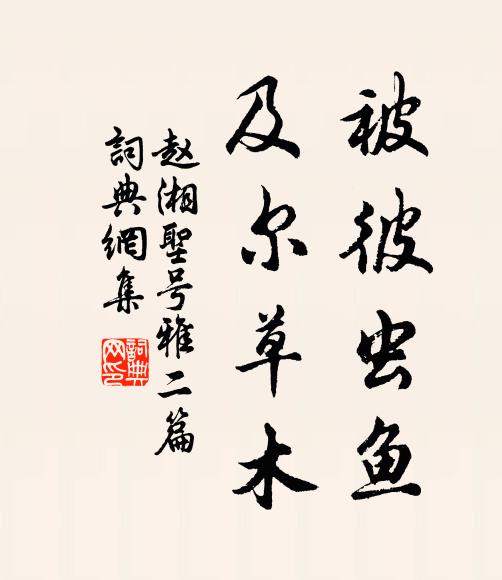 被彼虫鱼
及尔草木
赵湘聖号雅二篇
詞典網集
詞典网印